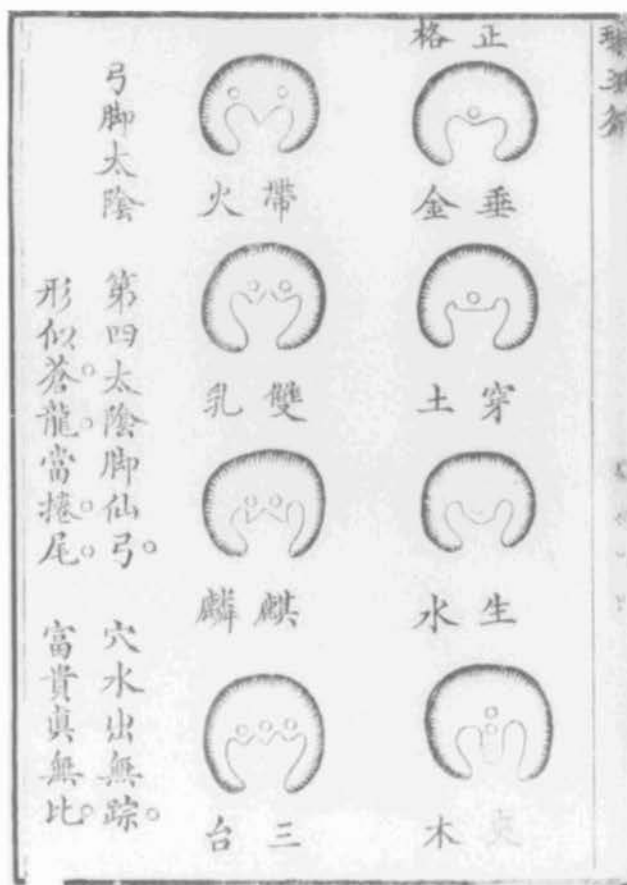 正格
垂金
穿土
生水
夾木
帶火
雙乳
麒麟
三台
弓脚太陰
第四太陰脚仙弓。穴水出無踪。
形似蒼龍當捲尾。富貴眞無比。